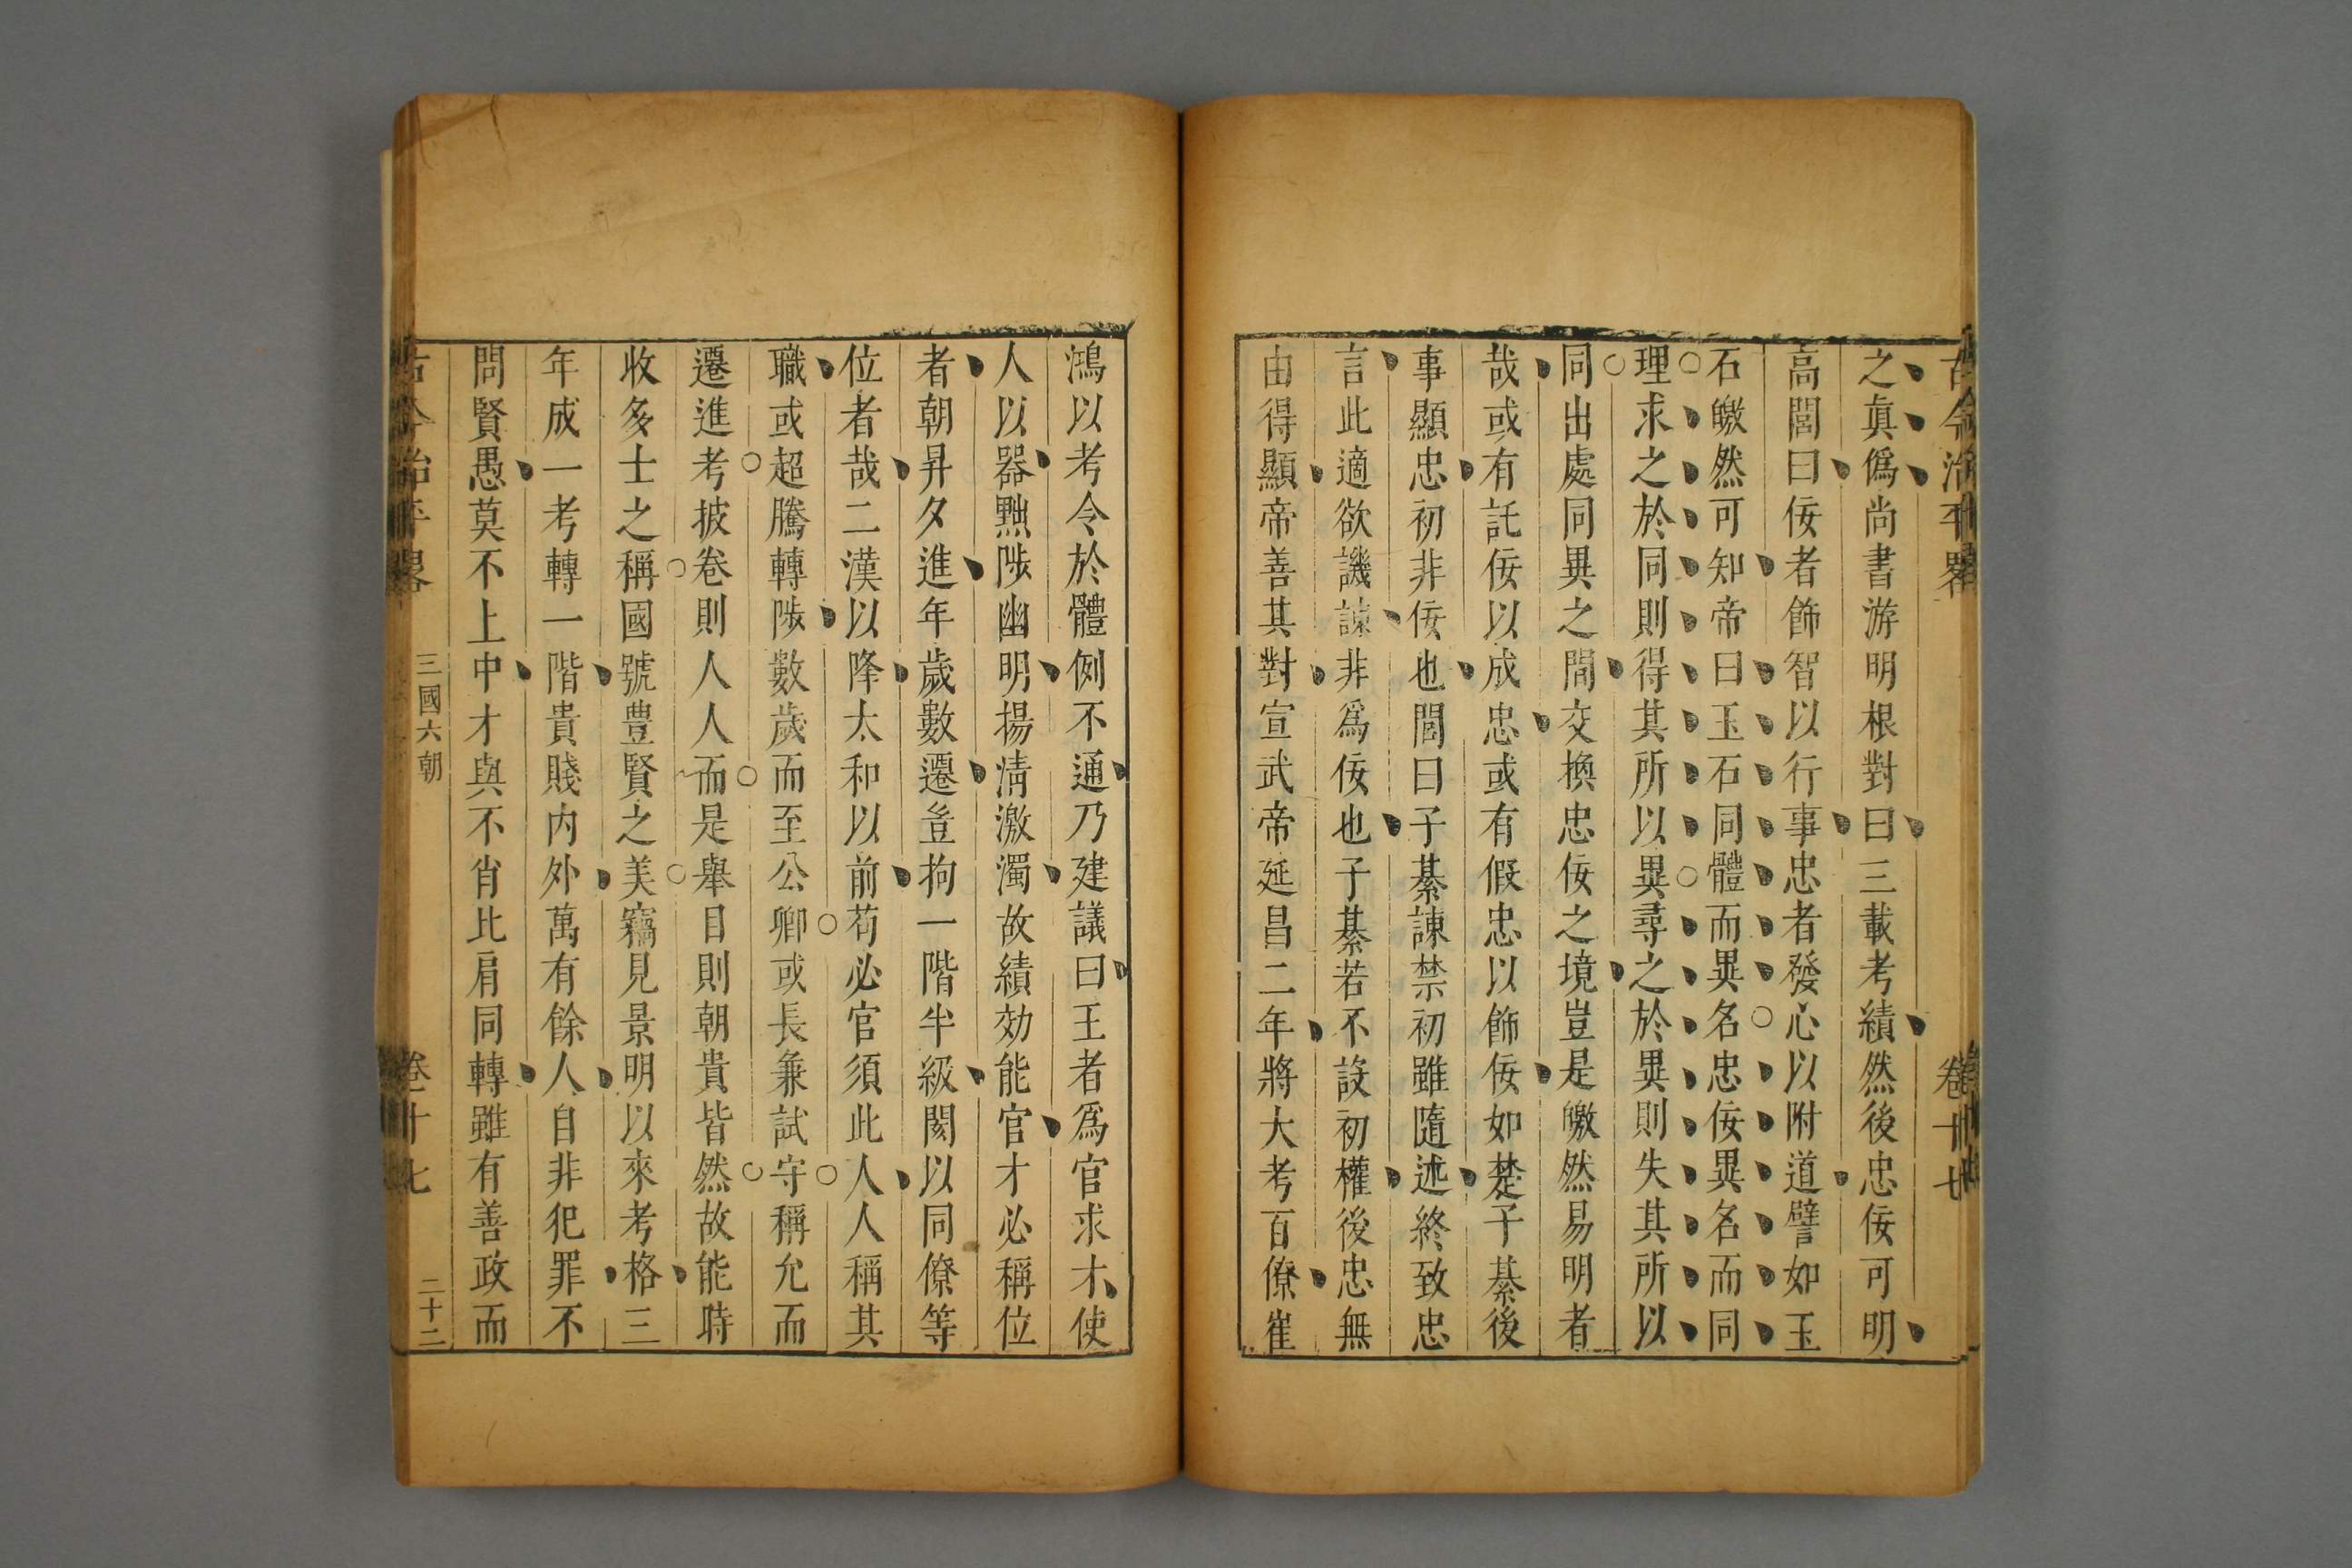 古今治平畧
卷十七
之真僞尚書游明根對曰三載考績然後忠佞可明
高閭曰佞者飾智以行事忠者發心以附道譬如玉
石皦然可知帝曰玉石同體而異名忠佞異名而同
理求之於同則得其所以異尋之於異則失其所以
同出處同異之間交換忠佞之境豈是皦然易明者
哉或有託佞以成忠或有假忠以飾佞如楚子綦後
事顯忠初非佞也閭曰子綦諫禁初雖隨述終致忠
言此適欲譏諫非爲佞也子綦若不設初權後忠無
由得顯帝善其對宣武帝延昌二年將大考百僚崔
鴻以考令於體例不通乃建議曰王者爲官求才使
人以器黜陟幽明揚清激濁故績効能官才必稱位
者朝昇夕進年歲數遷豈拘一階半級閡以同僚等
位者哉二漢以降太和以前苟必官須此人人稱其
職或超騰轉陟數歲而至公卿或長兼試守稱允而
遷進考披卷則人人而是舉目則朝貴皆然故能時
收多士之稱國號豊賢之美竊見景明以來考格三
年成一考轉一階貴賤内外萬有餘人自非犯罪不
問賢愚莫不上中才與不肖比肩同轉雖有善政而
古今治平畧
三國六朝
卷十七
二十二